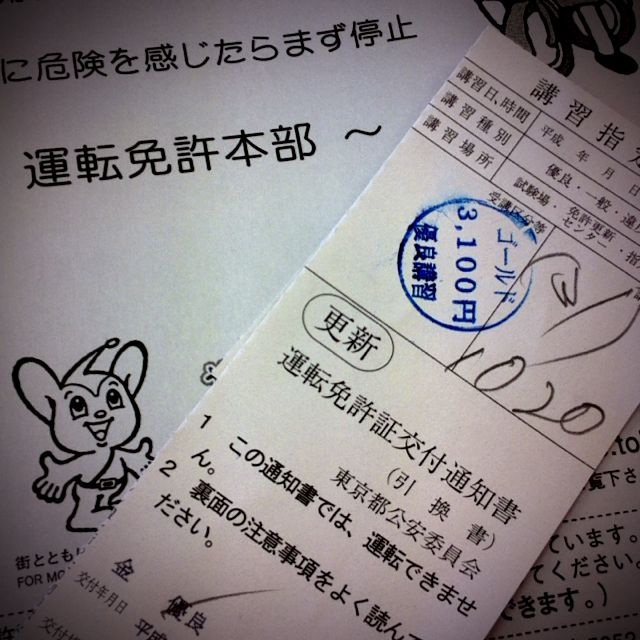 に危険を感じたらまず停止
運転免許本部 ～
講習指定
講習日,時間 平成 年 月 日
講習種別 優良・一般・違
講習場所 試験場・免許更新・指
センター
ゴールド
3,100円
優良講習
1020
更新
運転免許証交付通知書
(引換書)
東京都公安委員会
1 この通知書では、運転できませ
ん。
2 裏面の注意事項をよく読んで
ださい。
金 優良
交付年月日 平成
街ととも
FOR MO
.to
覧下さ
ています。
てください。
できます。)